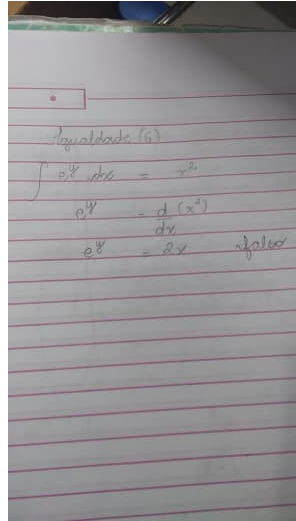 Igualdade (6)
∫ e^y dx = x²
e^y = d/dx (x²)
e^y = 2x falso